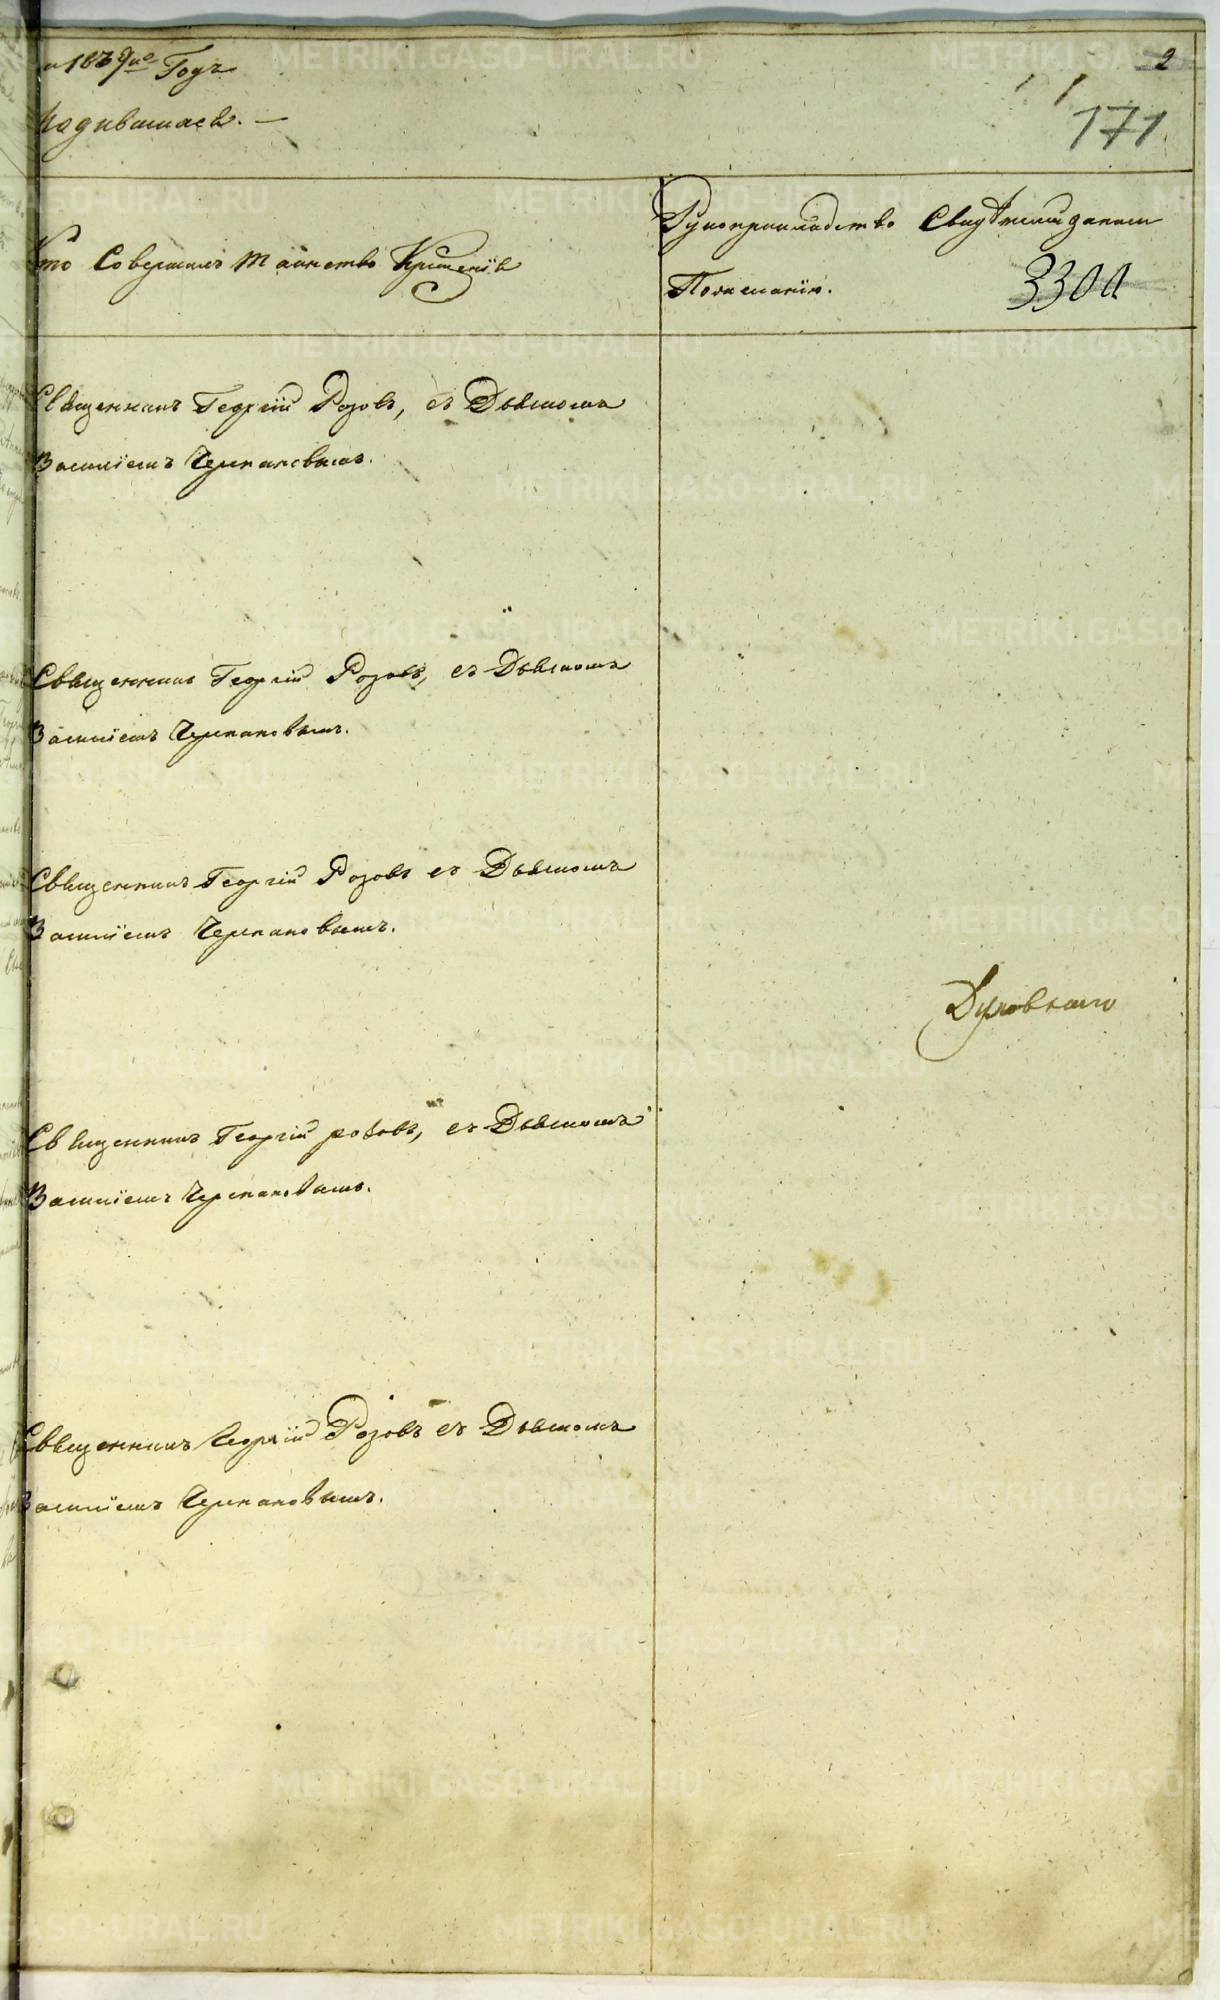 на 1839й Годъ
2
родившихся. —
171
Кто Совершилъ таинство Крещенія
Рукоприкладство Свидѣтелей записи
По желанію.
330а
Священникъ Георгій Розовъ, съ Дьячкомъ
Василіемъ Черпановымъ.
Священникъ Георгій Розовъ, съ Дьячкомъ
Василіемъ Черпановымъ.
Священникъ Георгій Розовъ съ Дьячкомъ
Василіемъ Черпановымъ.
Духовнаго
Священникъ Георгій розовъ, съ Дьячкомъ
Василіемъ Черпановымъ.
Священникъ Георгій Розовъ съ Дьячкомъ
Василіемъ Черпановымъ.
METRIKI.GASO-URAL.RU